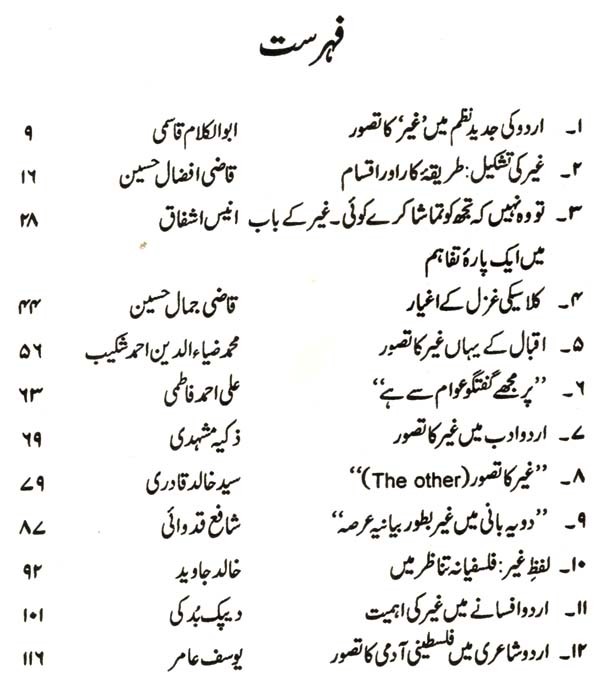 فہرست
۱۔ اردو کی جدید نظم میں ’غیر‘ کا تصور ابوالکلام قاسمی ۹
۲۔ غیر کی تشکیل: طریقۂ کار اور اقسام قاضی افضال حسین ۱۶
۳۔ تو وہ نہیں کہ تجھ کو تماشا کرے کوئی۔ غیر کے باب انیس اشفاق ۲۸
میں ایک پارۂ تفاہم
۴۔ کلاسیکی غزل کے اغیار قاضی جمال حسین ۴۴
۵۔ اقبال کے یہاں غیر کا تصور محمد ضیاء الدین احمد شکیب ۵۶
۶۔ ’’پر مجھے گفتگو عوام سے ہے‘‘ علی احمد فاطمی ۶۳
۷۔ اردو ادب میں غیر کا تصور ذکیہ مشہدی ۶۹
۸۔ ’’غیر کا تصور (The other)‘‘ سید خالد قادری ۷۹
۹۔ ’’دویہ بانی میں غیر بطور بیانیہ عرصہ‘‘ شافع قدوائی ۸۷
۱۰۔ لفظِ غیر: فلسفیانہ تناظر میں خالد جاوید ۹۲
۱۱۔ اردو افسانے میں غیر کی اہمیت دیپک بُدکی ۱۰۱
۱۲۔ اردو شاعری میں فلسطینی آدمی کا تصور یوسف عامر ۱۱۶